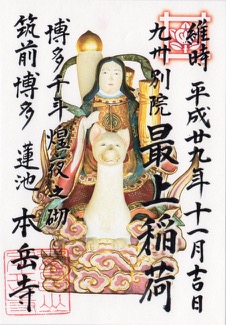 維時 平成廿九年十一月吉日
九州別院
最上稲荷
博多千年煌夜之砌
筑前博多 蓮池 本岳寺